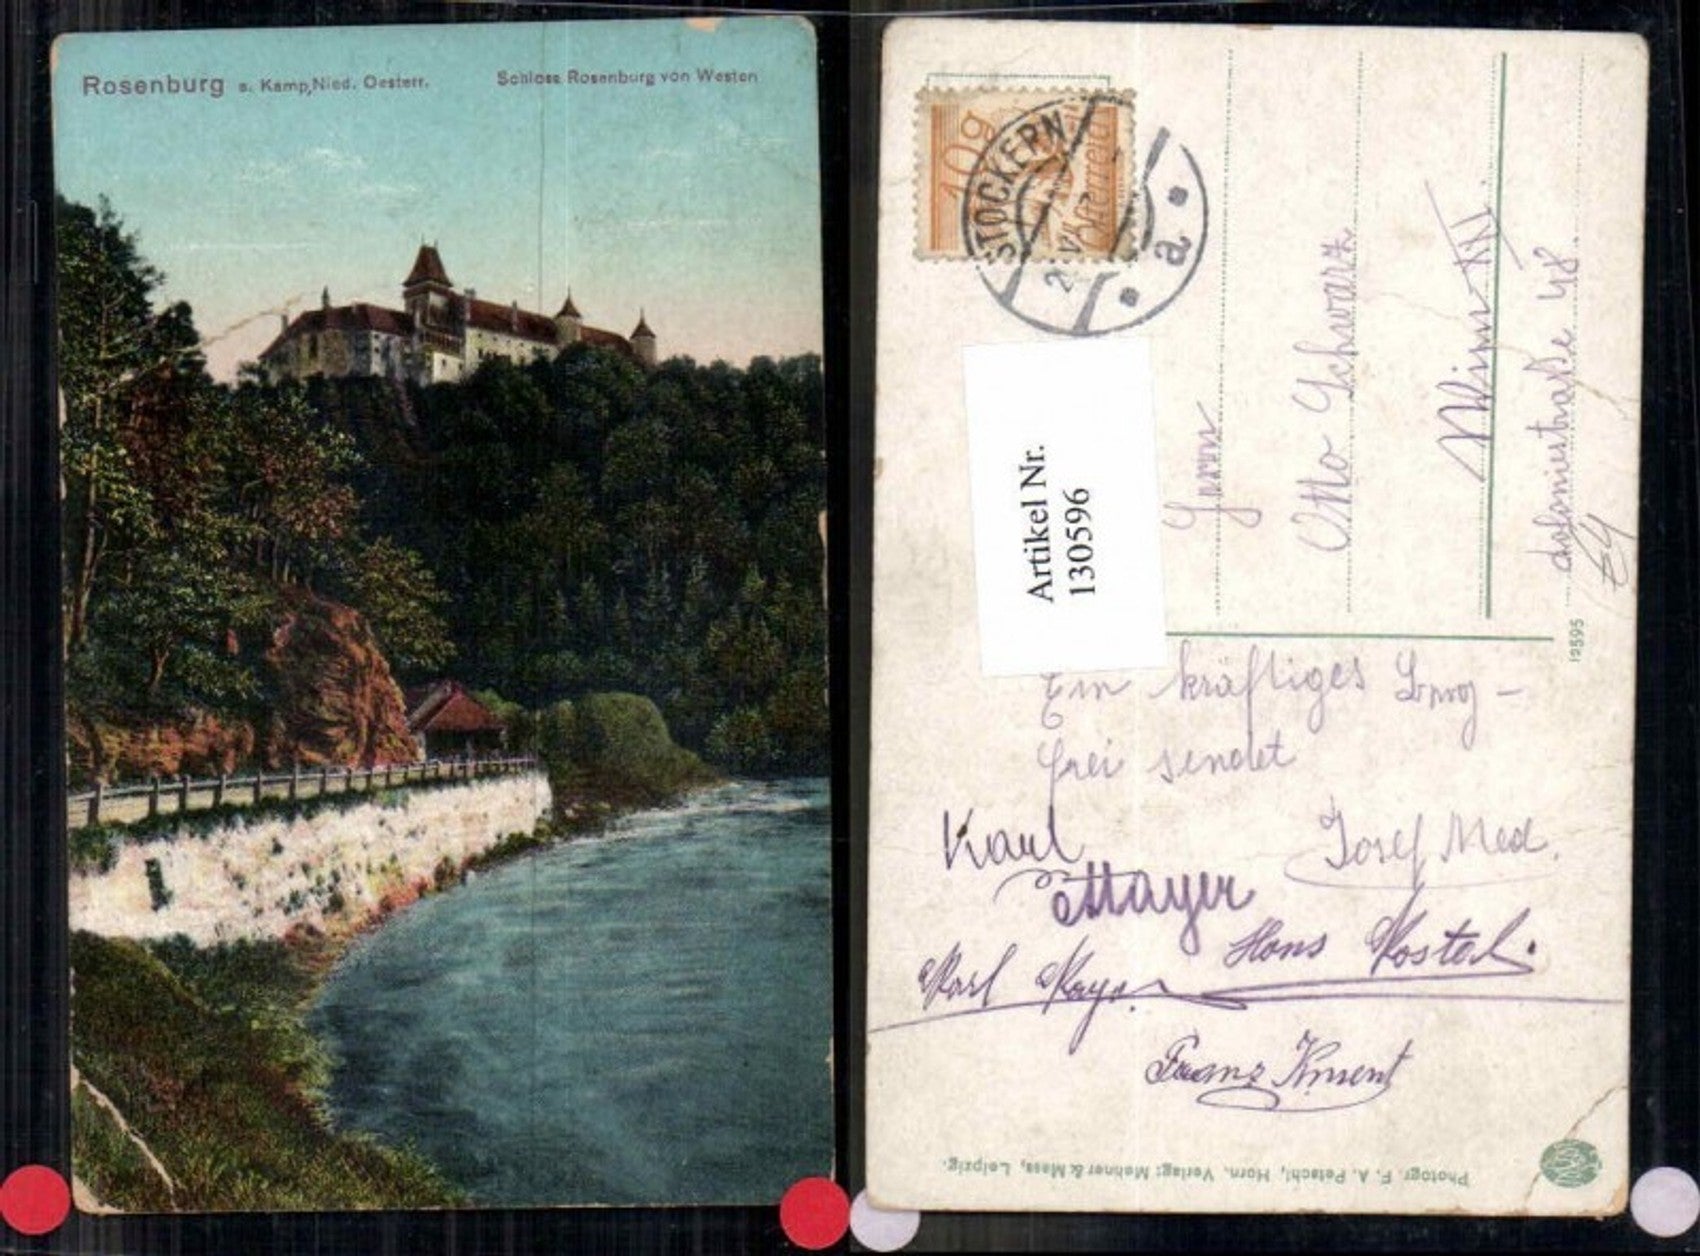 Rosenburg a. Kamp, Nied. Oesterr. Schloss Rosenburg von Westen
10g
Österreich
STOCKERN
a
Artikel Nr.
1305596
Herrn
Otto Schwarz
Wien
48
19595
Ein kräftiges
frei sendet
Karl
Mayer
Josef Med.
Karl Mayer
Hans
Franz
Photogr. F. A. Petschl, Horn. Verlag: Mehner & Maas, Leipzig.